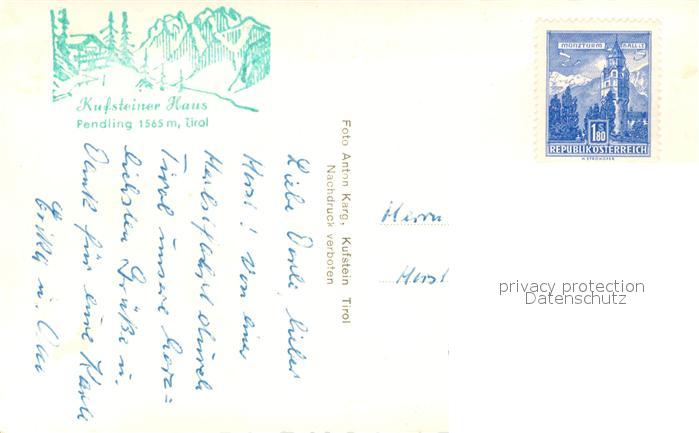 Kufsteiner Haus
Pendling 1565 m, Tirol
Liebe Dorli, lieber
Horst! Von einer
Herbstfahrt durch
Tirol unsere herz=
lichsten Grüße u.
Dank für eure Karte
u.
Foto Anton Karg, Kufstein Tirol
Nachdruck verboten
MÜNZTURM HALL i.T.
1.80 S
REPUBLIK ÖSTERREICH
Herrn
Horst
privacy protection
Datenschutz